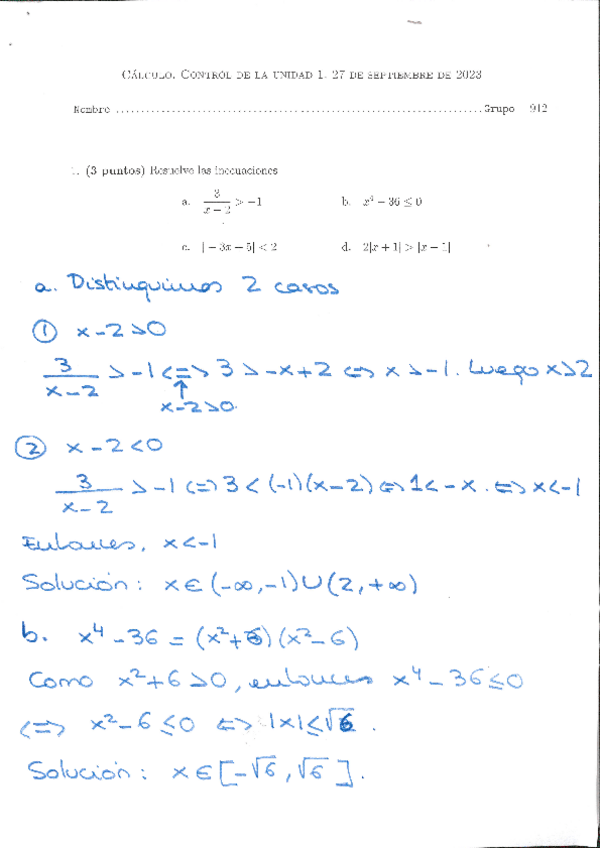 CÁLCULO. CONTROL DE LA UNIDAD 1. 27 DE SEPTIEMBRE DE 2023
Nombre ........................................................................Grupo 912
1. (3 puntos) Resuelve las inecuaciones
a. 3/(x − 2) > −1 b. x⁴ − 36 ≤ 0
c. | − 3x − 5| < 2 d. 2|x + 1| > |x − 1|
a. Distinguimos 2 casos
① x-2>0
3/(x-2) > -1 <=> 3 > -x+2 <=> x > -1. Luego x>2
↑
x-2>0.
② x-2<0
3/(x-2) > -1 <=> 3 < (-1)(x-2) <=> 1 < -x. <=> x<-1
Entonces, x<-1
Solución: x∈(-∞,-1)∪(2,+∞)
b. x⁴-36 = (x²+6)(x²-6)
Como x²+6>0, entonces x⁴-36≤0
<=> x²-6≤0 <=> |x|≤√6.
Solución: x∈[-√6,√6].